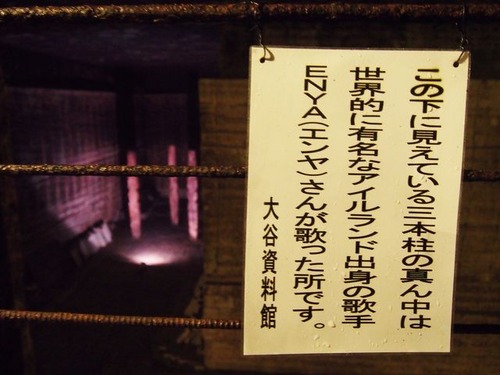 この下に見えている三本柱の真ん中は
世界的に有名なアイルランド出身の歌手
ENYA(エンヤ)さんが歌った所です。
大谷資料館